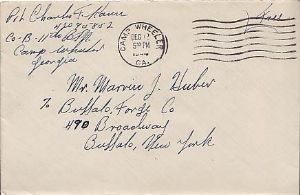 Pvt. Charles F.
Co-B-11th
Camp Wheeler
Georgia
CAMP WHEELER
DEC 17
5 PM
GA.
Free
Mr. Marvin J. Huber
To Buffalo Forge Co
490 Broadway
Buffalo, New York